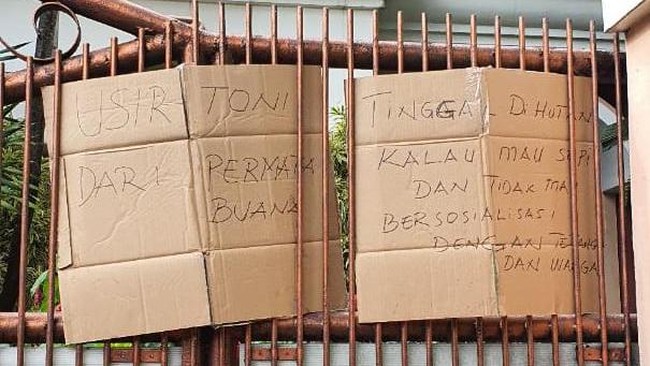 USIR TONI
DARI PERMATA
BUANA
TINGGAL DIHUTAN
KALAU MAU SEPI
DAN TIDAK MAU
BERSOSIALISASI
DENGAN TETANGGA
DAN WARGA